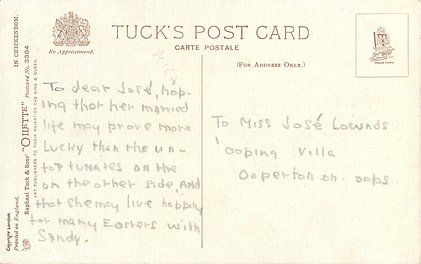 TUCK'S POST CARD
CARTE POSTALE
By Appointment.
(FOR ADDRESS ONLY.)
TRADE MARK
IN CHICKENDOM.
Raphael Tuck & Sons' "OILETTE" Postcard No. 3394
ART PUBLISHERS TO THEIR MAJESTIES THE KING & QUEEN.
Copyright London
Printed in England.
To dear José, hop-
ing that her married
life may prove more
Lucky than the un-
fortunates on the
on the other side, And
that she may live happily
for many Easters with
Sandy.
To Miss José Lownds
'Ooping Villa
Ooperton on. Oops.